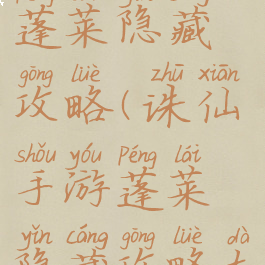 蓬莱隐藏
gōng lüè zhū xiān
攻略(诛仙
shǒu yóu Péng lái
手游蓬莱
yǐn cáng gōng lüè dà